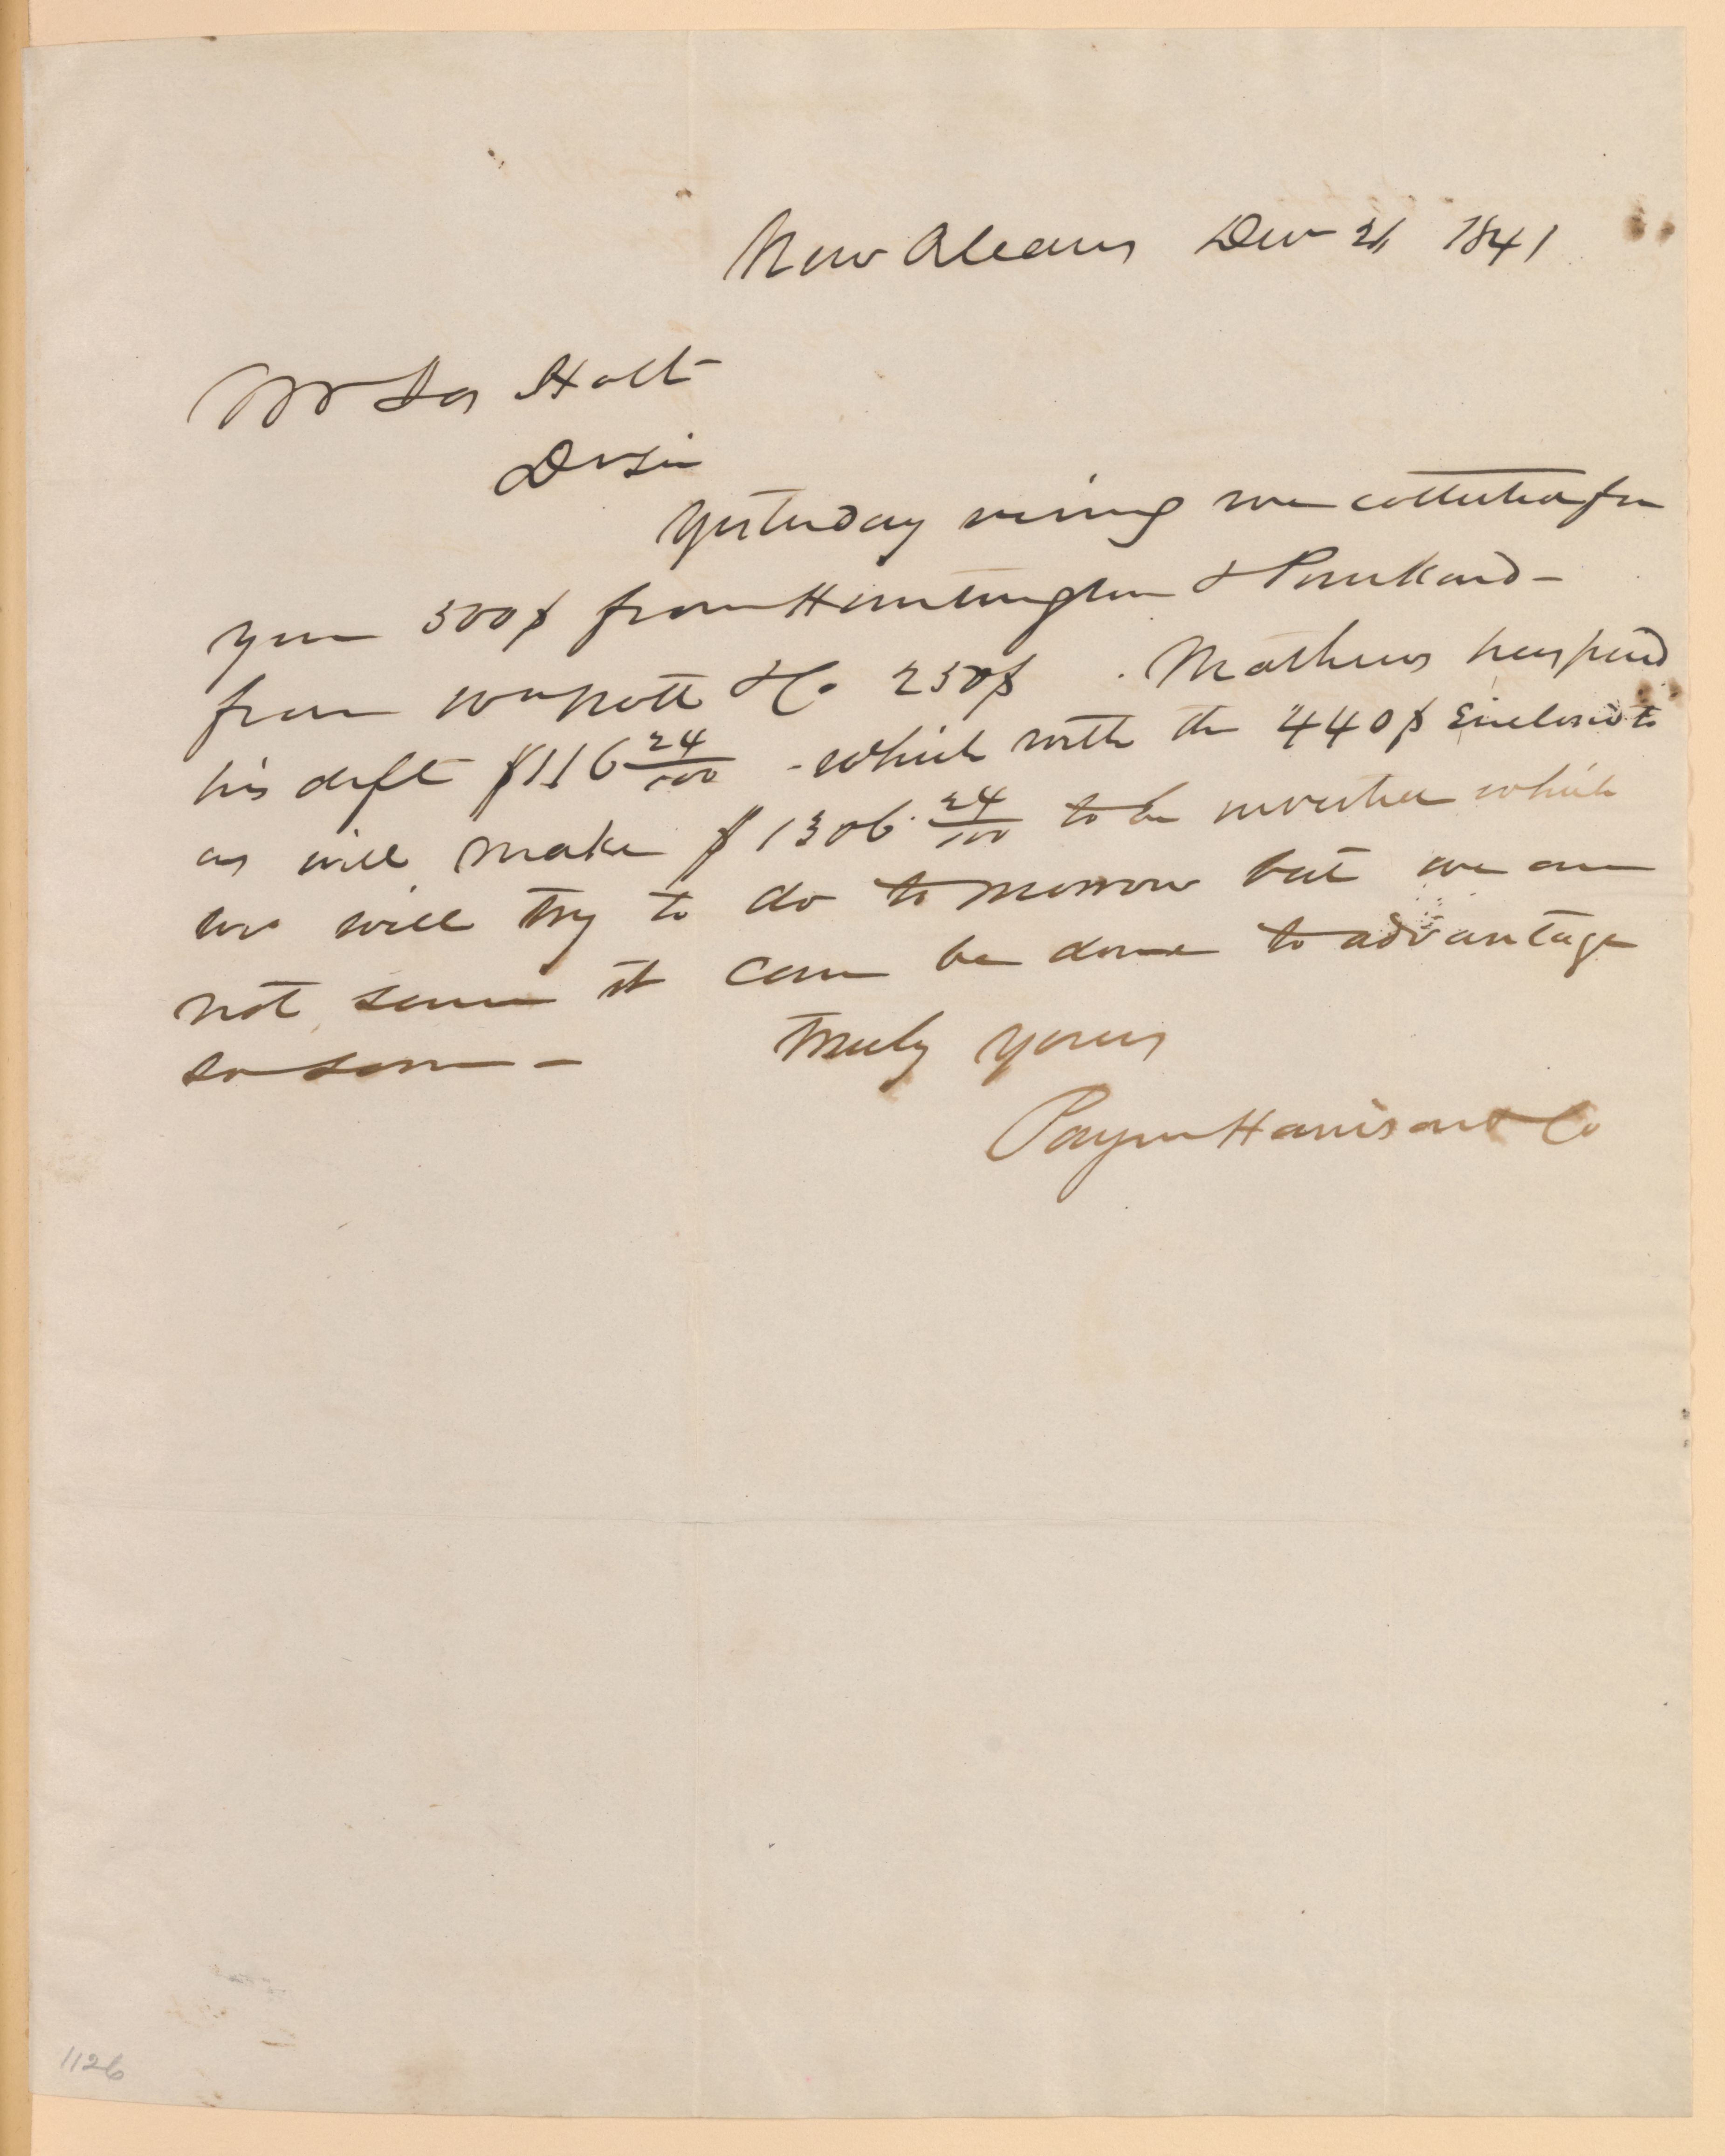 New Orleans Decr 21 1841
Mr Jos Holt
Dr Sir
Yesterday evening we collected for
you 500$ from Huntington &
from Wm Nott & Co 250$ . Mathews has paid
his dft $116 24/100 - which with the 440$ Enclosed to
us will make $1306 24/100 to be invested which
we will try to do to morrow but we are
not sure it can be done to advantage
so soon -
Truly yours
Payne Harrison & Co
1126